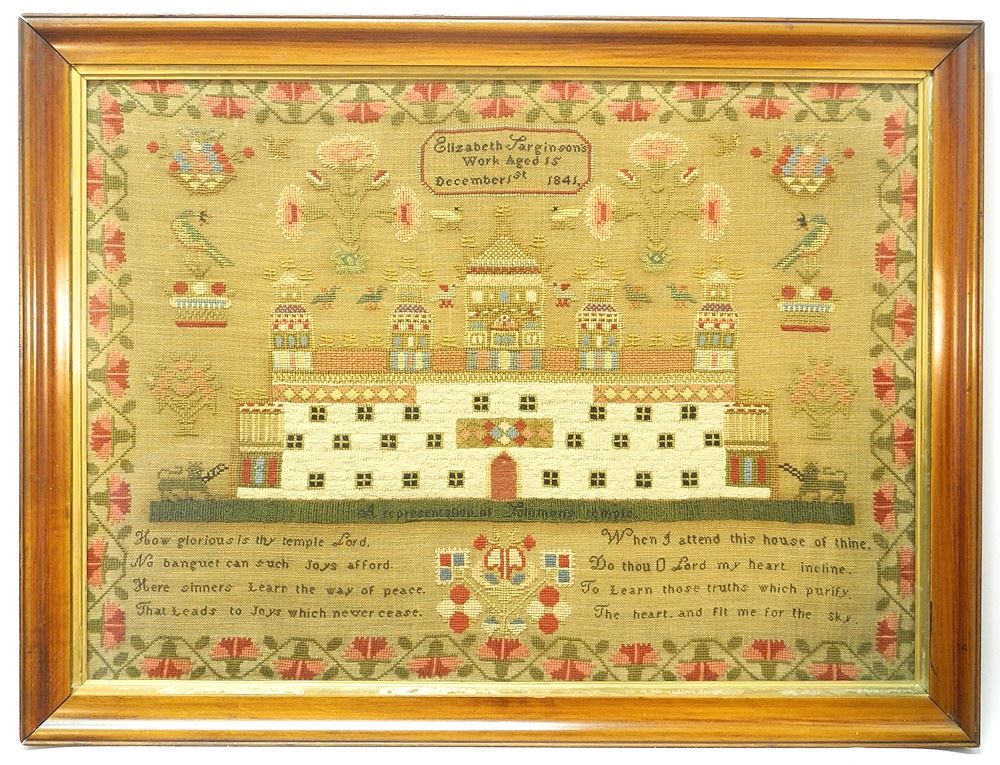 Elizabeth Sarginson's
Work Aged 15
December 1st 1841.
A representation of Solomons temple
How glorious is thy temple Lord,
No banquet can such Joys afford.
Here sinners Learn the way of peace.
That Leads to Joys which never cease.
When I attend this house of thine,
Do thou O Lord my heart incline.
To Learn those truths which purify,
The heart, and fit me for the sky.